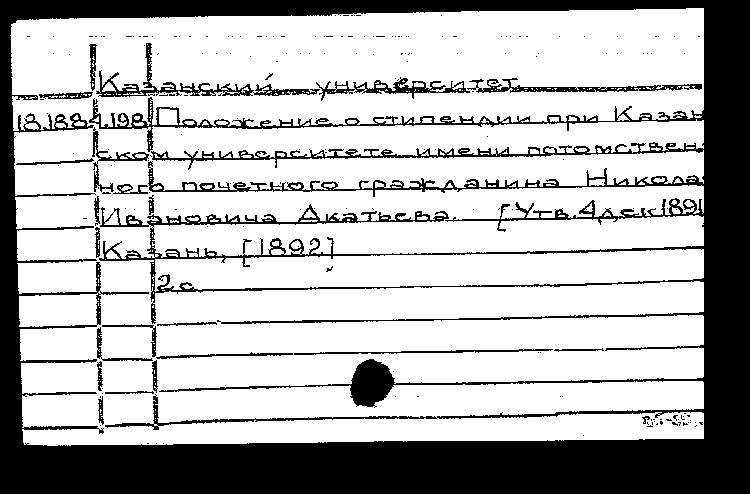 Казанский университет
18.188 4.198 Положение о стипендии при Казан
ском университете имени потомствен
ного почетного гражданина Никола
Ивановича Акатьева. [Утв. 4 дек 1891
Казань, [1892]
2 с